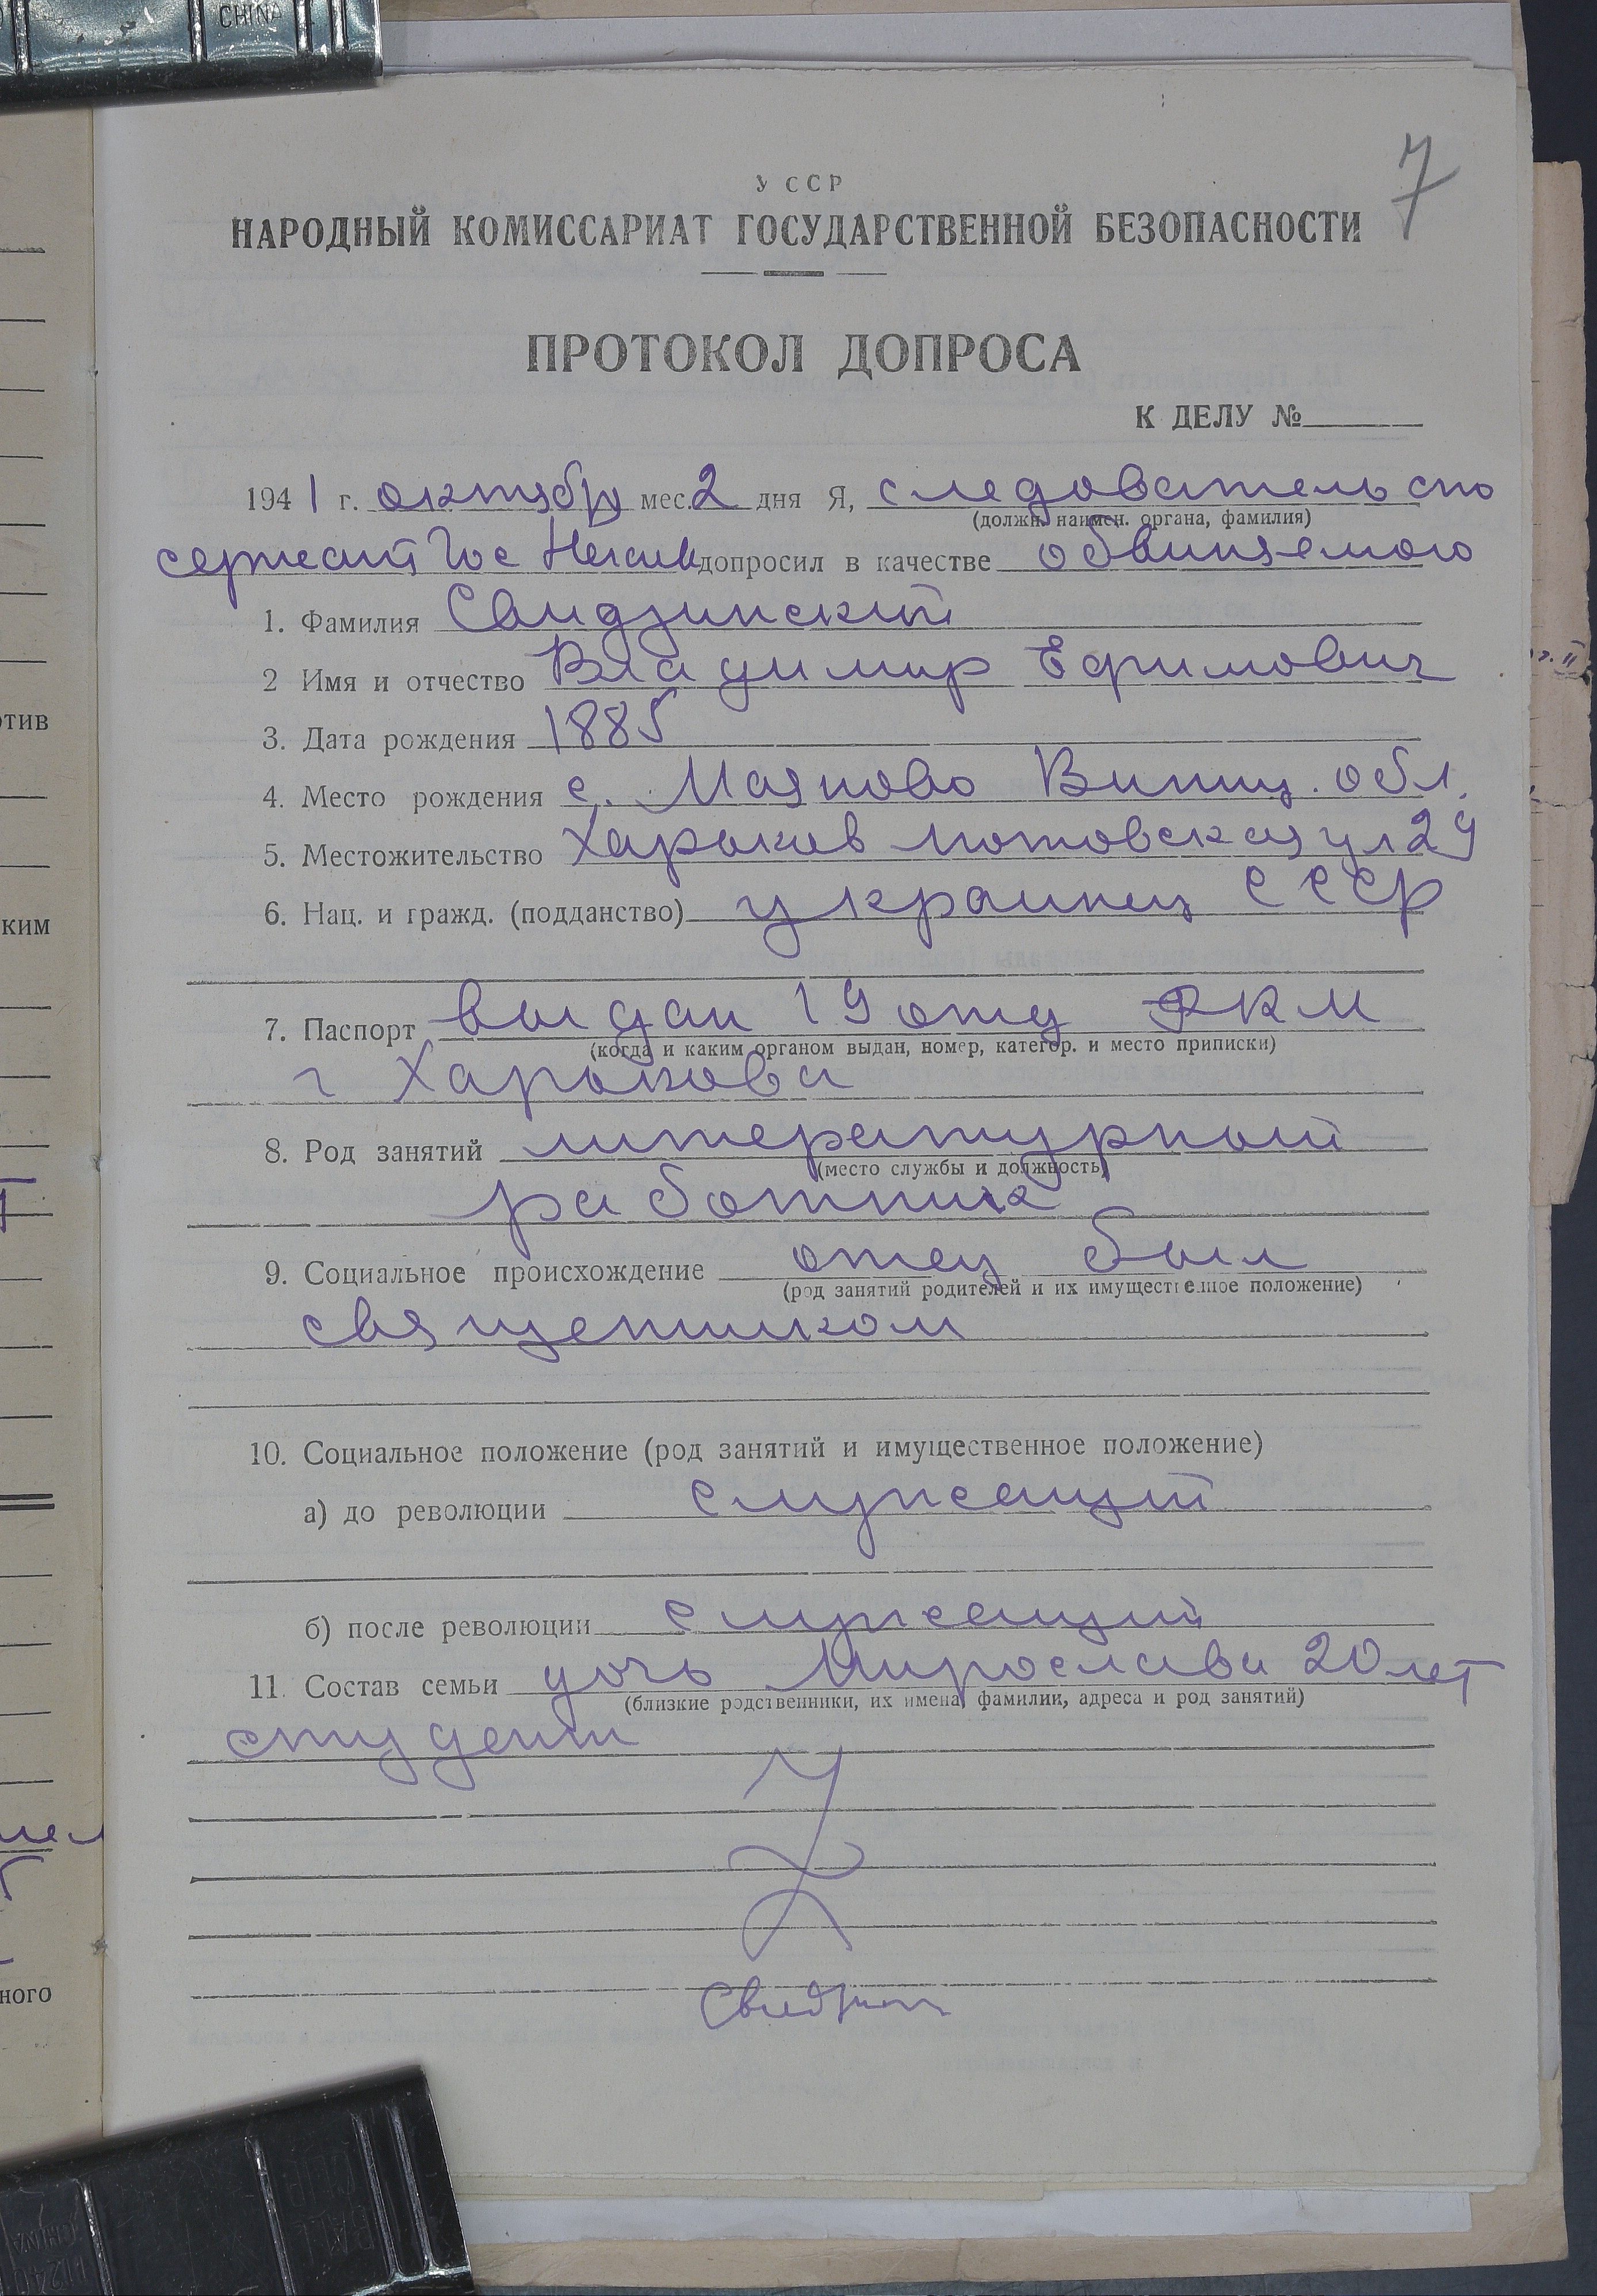 CHINA
7
УССР
НАРОДНЫЙ КОМИССАРИАТ ГОСУДАРСТВЕННОЙ БЕЗОПАСНОСТИ
ПРОТОКОЛ ДОПРОСА
К ДЕЛУ №
1941 г. октября мес. 2 дня Я, следователь спо
(должн. наимен. органа, фамилия)
сержант Гос допросил в качестве обвиняемого
1. Фамилия Свидзинский
2 Имя и отчество Владимир Ефимович
3. Дата рождения 1885
4. Место рождения с. Маяново Винниц. обл.
5. Местожительство Харьков ул 29
6. Нац. и гражд. (подданство) украинец СССР
7. Паспорт выдан 19 отд РКМ
(когда и каким органом выдан, номер, категор. и место приписки)
г Харькова
8. Род занятий литературный
(место службы и должность)
работник
9. Социальное происхождение отец был
(род занятий родителей и их имущественное положение)
священником
10. Социальное положение (род занятий и имущественное положение)
а) до революции служащий
б) после революции служащий
11. Состав семьи дочь Мирослава 20 лет
(близкие родственники, их имена, фамилии, адреса и род занятий)
студент
Свидзин
отив
ким
ного
CHINA